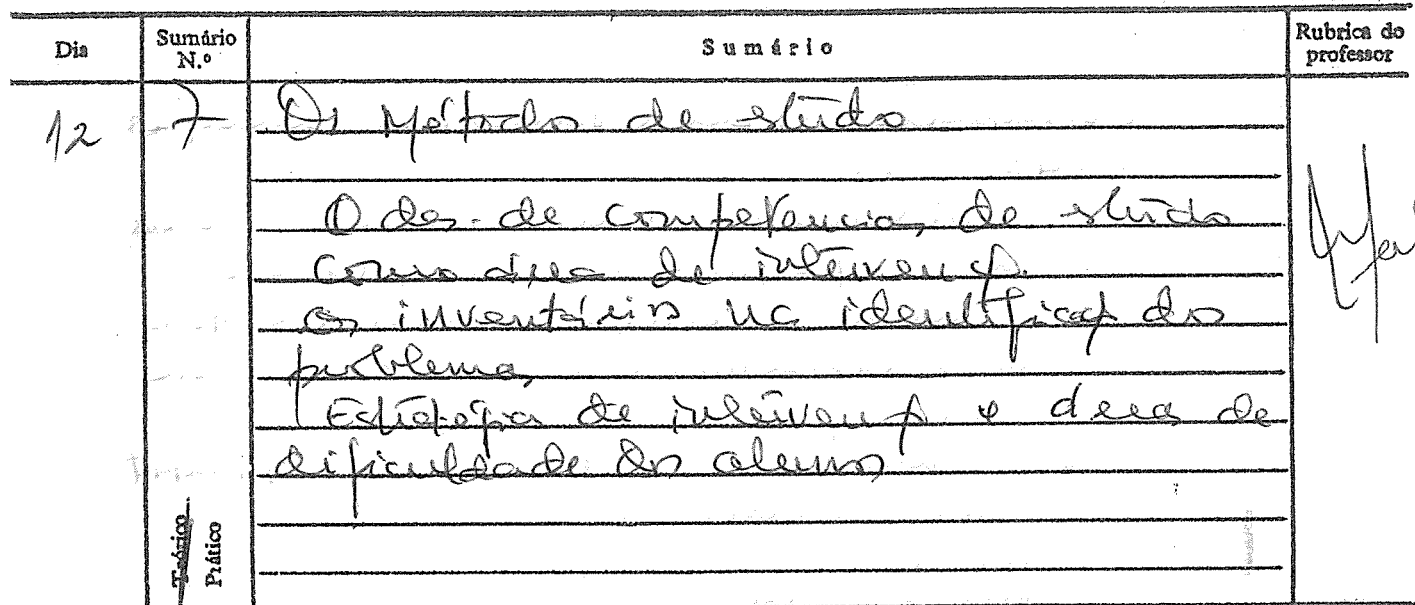 Dia Sumário N.º Sumário Rubrica do professor
12 7 Os Métodos de estudo
O des. de competencias de estudo
como área de intervenç.
Os inventários na identificaç dos
problemas
Estratégia de intervenç e área de
dificuldade dos alunos
Teórico
Prático